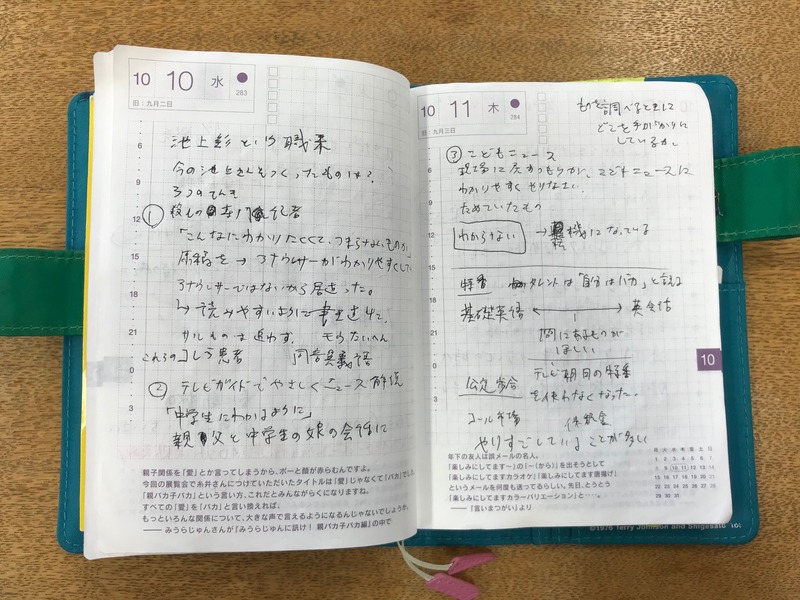 10 10 水
283
旧：九月二日
池上彰という職業
今の池上さんをつくったものは？
3つのてんき
① 記者
「こんなにわかりにくくて、つまらないものが」
原稿を→アナウンサーがわかりやすくして
アナウンサーではないから居直った。
↳読みやすいように書き直して
サルものは追わず
コレラ患者 同音異義語
② テレビガイドでやさしくニュース解説
「中学生にわかるように」
親父と中学生の娘の会話に
6
9
12
15
18
21
0
3
親子関係を「愛」とか言ってしまうから、ポーと顔が赤らむんですよ。
今回の展覧会で糸井さんにつけていただいたタイトルは「愛」じゃなくて「バカ」でした。
「親バカ子バカ」という言い方、これだとみんながらくになりますね。
すべての「愛」を「バカ」と言い換えれば、
もっといろんな関係について、大きな声で言えるようになるんじゃないでしょうか。
——みうらじゅんさんが『みうらじゅんに訊け！ 親バカ子バカ編』の中で
10 11 木
284
旧：九月三日
ものを調べるときに
どこを手がかりに
しているか。
③ こどもニュース
こどもニュースは
わかりやすくやりなさい
ためていたもの
わからない → 機になっている
特番 タレントは「自分はバカ」と言える
基礎英語 ←→ 英会話
間にあるものが
ほしい
公定歩合
テレビ朝日の特番
を使わなくなった。
コール市場
やりすごしていることが多い
6
9
12
15
18
21
0
3
10
年下の友人は誤メールの名人。
「楽しみにしてます〜」の「〜（から）」を出そうとして
「楽しみにしてますカラオケ」「楽しみにしてます唐揚げ」
というメールを何度も送ってるらしい。先日、とうとう
「楽しみにしてますカラーバリエーション」と……。
——『言いまつがい』より
月 火 水 木 金 土 日
1 2 3 4 5 6 7
8 9 10 11 12 13 14
15 16 17 18 19 20 21
22 23 24 25 26 27 28
29 30 31
©1976 Terry Johnson and Shigesato